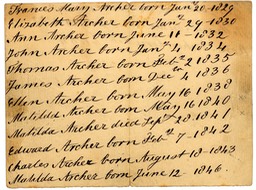 Frances Mary Archer born Jany 20-1829
Elizabeth Archer born Jany 29-1830
Ann Archer born June 11-1832
John Archer born Jany 4-1834
Thomas Archer born Feby 2 1835
James Archer born Decr 4 1836
Ellen Archer born May 16 1838
Matilda Archer born May 16 1840
Matilda Archer died Sept 28 1841
Edward Archer born Feby 7-1842
Charles Archer born August 13-1843
Matilda Archer born June 12 1846.